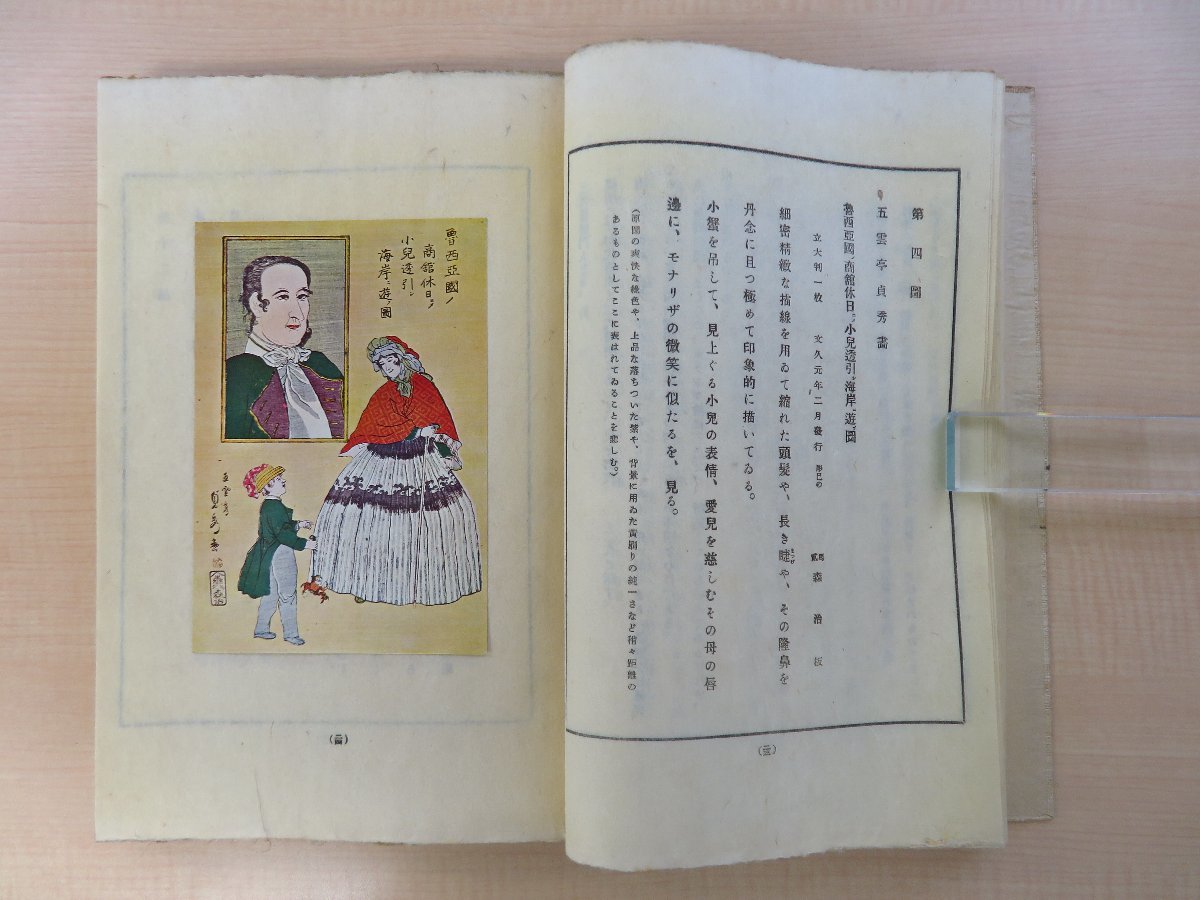 第四圖
五雲亭貞秀畫
魯西亞國 商舘休日。小兒透引。海岸遊。圖
立大判一枚 文久元年二月發行 森治板
細密精緻な描線を用ゐて縮れた頭髮や、長き睫や、その隆鼻を
丹念に且つ極めて印象的に描いてゐる。
小蟹を吊して、見上ぐる小兒の表情、愛兒を慈しむその母の唇
邊に、モナリザの微笑に似たるを、見る。
(原圖の爽快な綠色や、上品な落ちついた紫や、背景に用ゐた黄刷りの純一さなど稍々距離の
あるものとしてここに表はれてゐることを悲しむ。)
魯西亞國ノ
商舘休日
小兒逢引
海岸遊圖
貞秀画